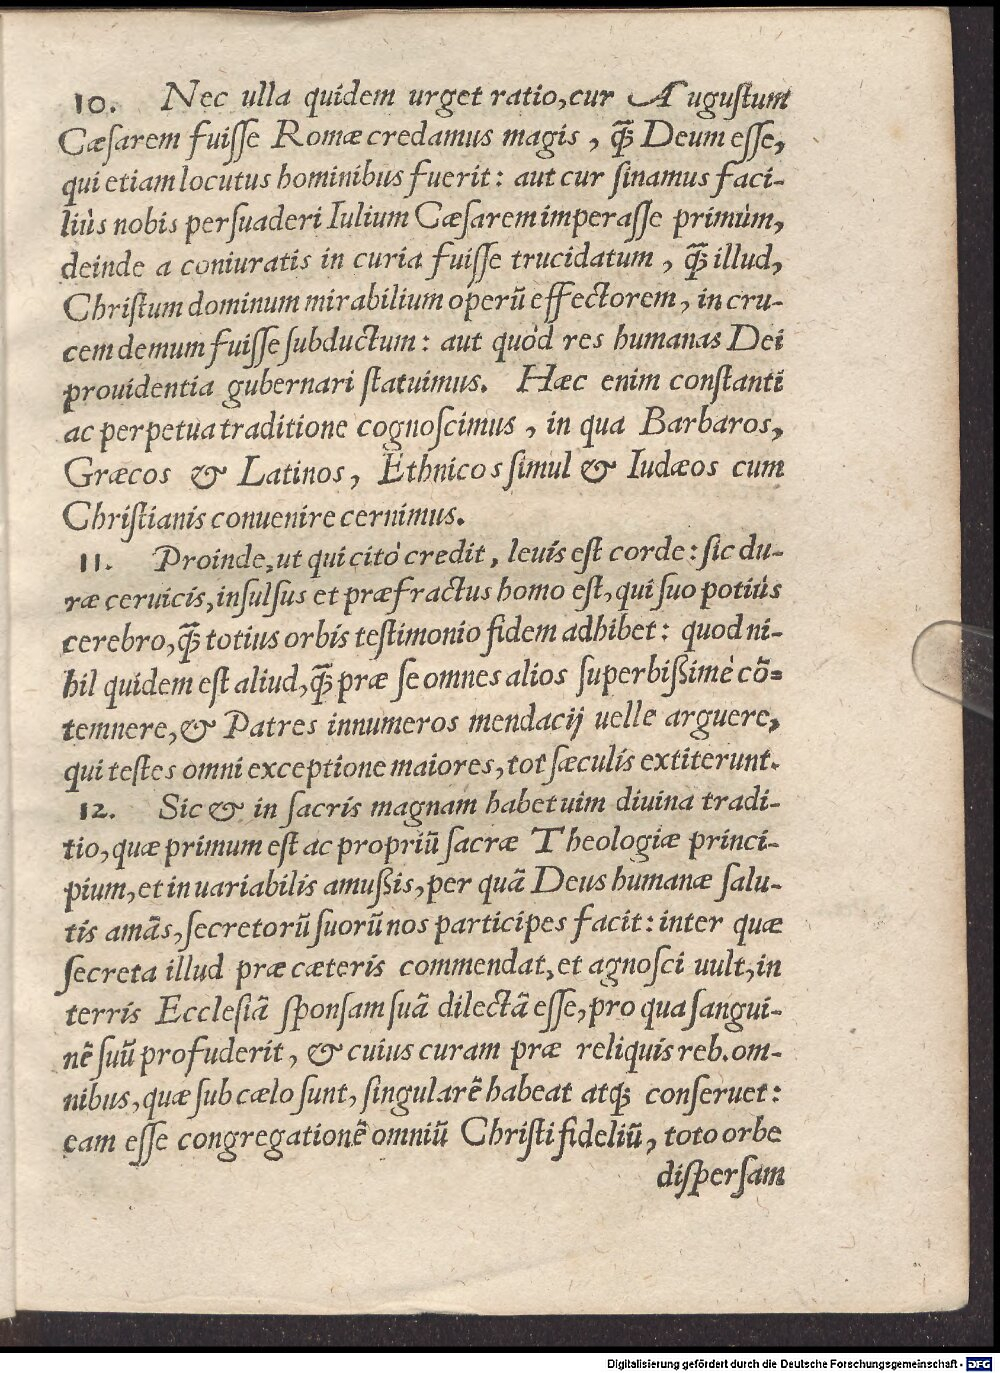 10. Nec ulla quidem urget ratio, cur Auguſtum
Cæſarem fuiſſe Romæ credamus magis, qȝ̃ Deum eſſe,
qui etiam locutus hominibus fuerit: aut cur ſinamus faci-
liùs nobis perſuaderi Iulium Cæſarem imperaſſe primùm,
deinde a coniuratis in curia fuiſſe trucidatum, qȝ̃ illud,
Chriſtum dominum mirabilium operũ effectorem, in cru-
cem demum fuiſſe ſubductum: aut quòd res humanas Dei
prouidentia gubernari ſtatuimus. Hæc enim conſtanti
ac perpetua traditione cognoſcimus, in qua Barbaros,
Græcos & Latinos, Ethnicos ſimul & Iudæos cum
Chriſtianis conuenire cernimus.
11. Proinde, ut qui citò credit, leuis eſt corde: ſic du-
ræ ceruicis, inſulſus et præfractus homo eſt, qui ſuo potiùs
cerebro, qȝ̃ totius orbis teſtimonio fidem adhibet: quod ni-
hil quidem eſt aliud, qȝ̃ præ ſe omnes alios ſuperbißimè cõ-
temnere, & Patres innumeros mendacij uelle arguere,
qui teſtes omni exceptione maiores, tot ſæculis extiterunt.
12. Sic & in ſacris magnam habet uim diuina tradi-
tio, quæ primum eſt ac propriũ ſacræ Theologiæ princi-
pium, et inuariabilis amußis, per quã Deus humanæ ſalu-
tis amãs, ſecretorũ ſuorũ nos participes facit: inter quæ
ſecreta illud præ cæteris commendat, et agnoſci uult, in
terris Eccleſiã ſponſam ſuã dilectã eſſe, pro qua ſangui-
nẽ ſuũ profuderit, & cuius curam præ reliquis reb. om-
nibus, quæ ſub cælo ſunt, ſingularẽ habeat atqȝ conſeruet:
eam eſſe congregationẽ omniũ Chriſti fideliũ, toto orbe
diſperſam
Digitalisierung gefördert durch die Deutsche Forschungsgemeinschaft - DFG